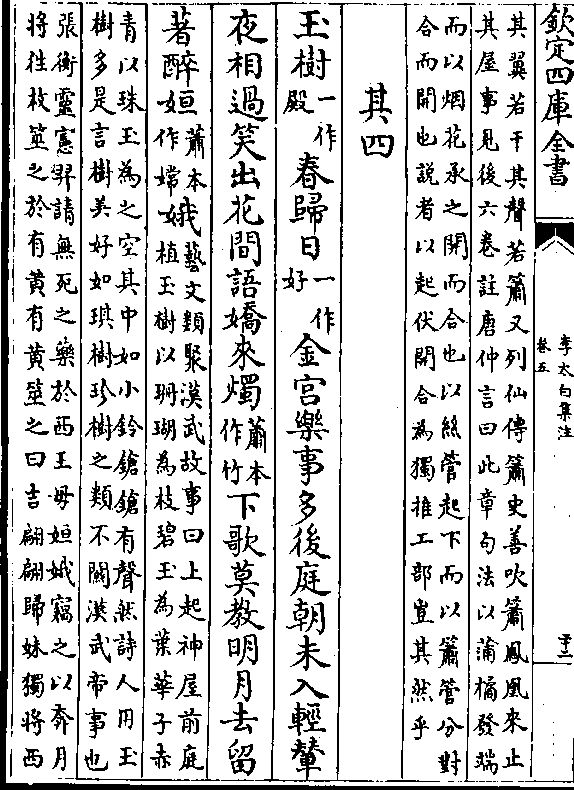 欽定四庫全書
李太白集注
卷五
其翼若干其聲若簫又列仙傳簫史善吹簫鳳凰來止
其屋事見後六卷註唐仲言曰此章句法以蒲橘發端
而以烟花承之開而合也以絲管起下而以簫管分對
合而開也説者以起伏開合為獨推工部豈其然乎
其四
玉樹一作殿春歸日一作好金宮樂事多後庭朝未入輕輦
夜相過笑出花間語嬌來燭蕭本作竹下歌莫教明月去留
著醉姮蕭本作嫦娥藝文類聚漢武故事曰上起神屋前庭
植玉樹以珊瑚為枝碧玉為葉華子赤
青以珠玉為之空其中如小鈴鎗鎗有聲然詩人用玉
樹多是言樹美好如琪樹珍樹之類不關漢武帝事也
張衡靈憲羿請無死之藥於西王母姮娥竊之以奔月
將往枚筮之於有黄有黄筮之曰吉翩翩歸妹獨將西